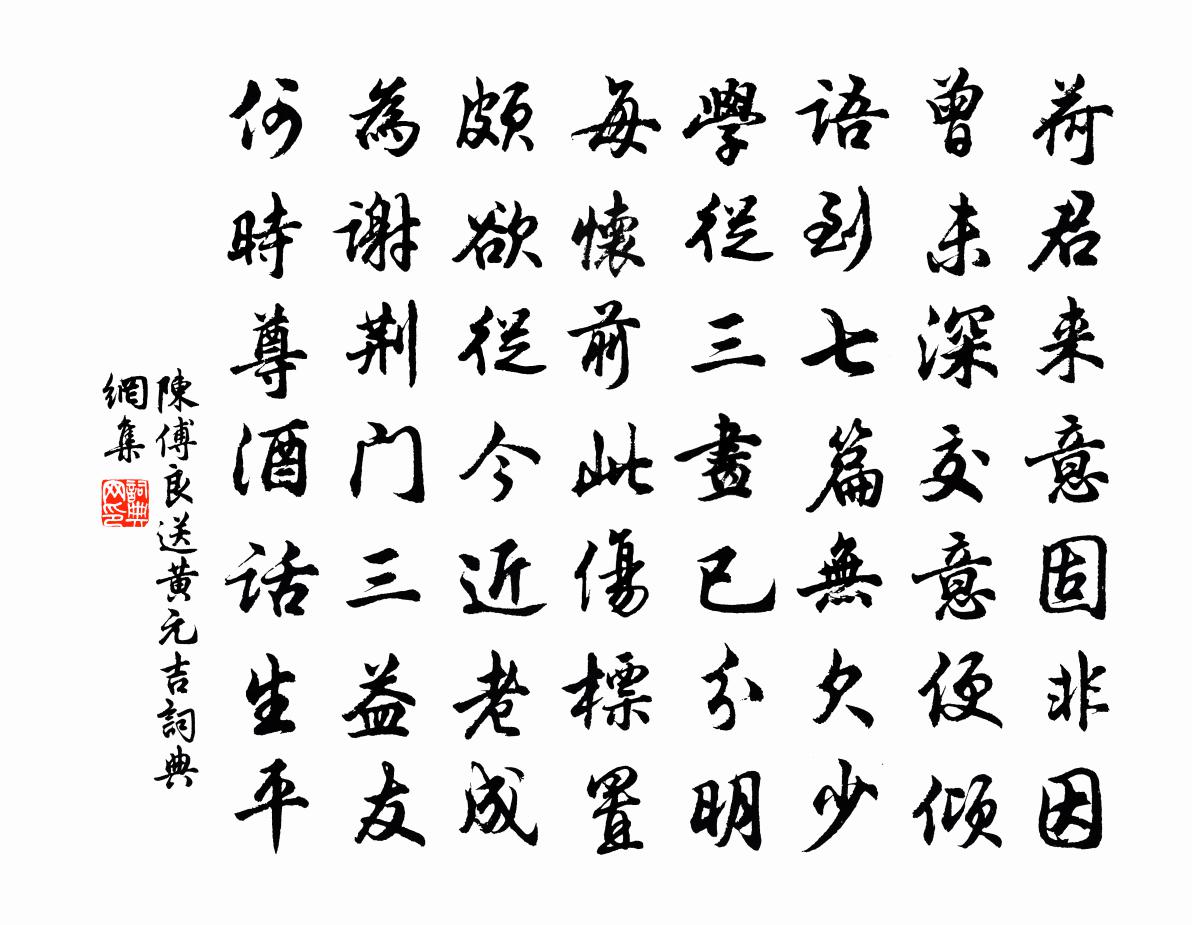 荷君来意固非因
曾未深交意便倾
语到七篇無欠少
學從三畫已分明
每懷前此傷標置
頗欲從今近老成
為謝荆门三益友
何時尊酒话生平
陳傅良送黄元吉詞典
網集
詞典
网印